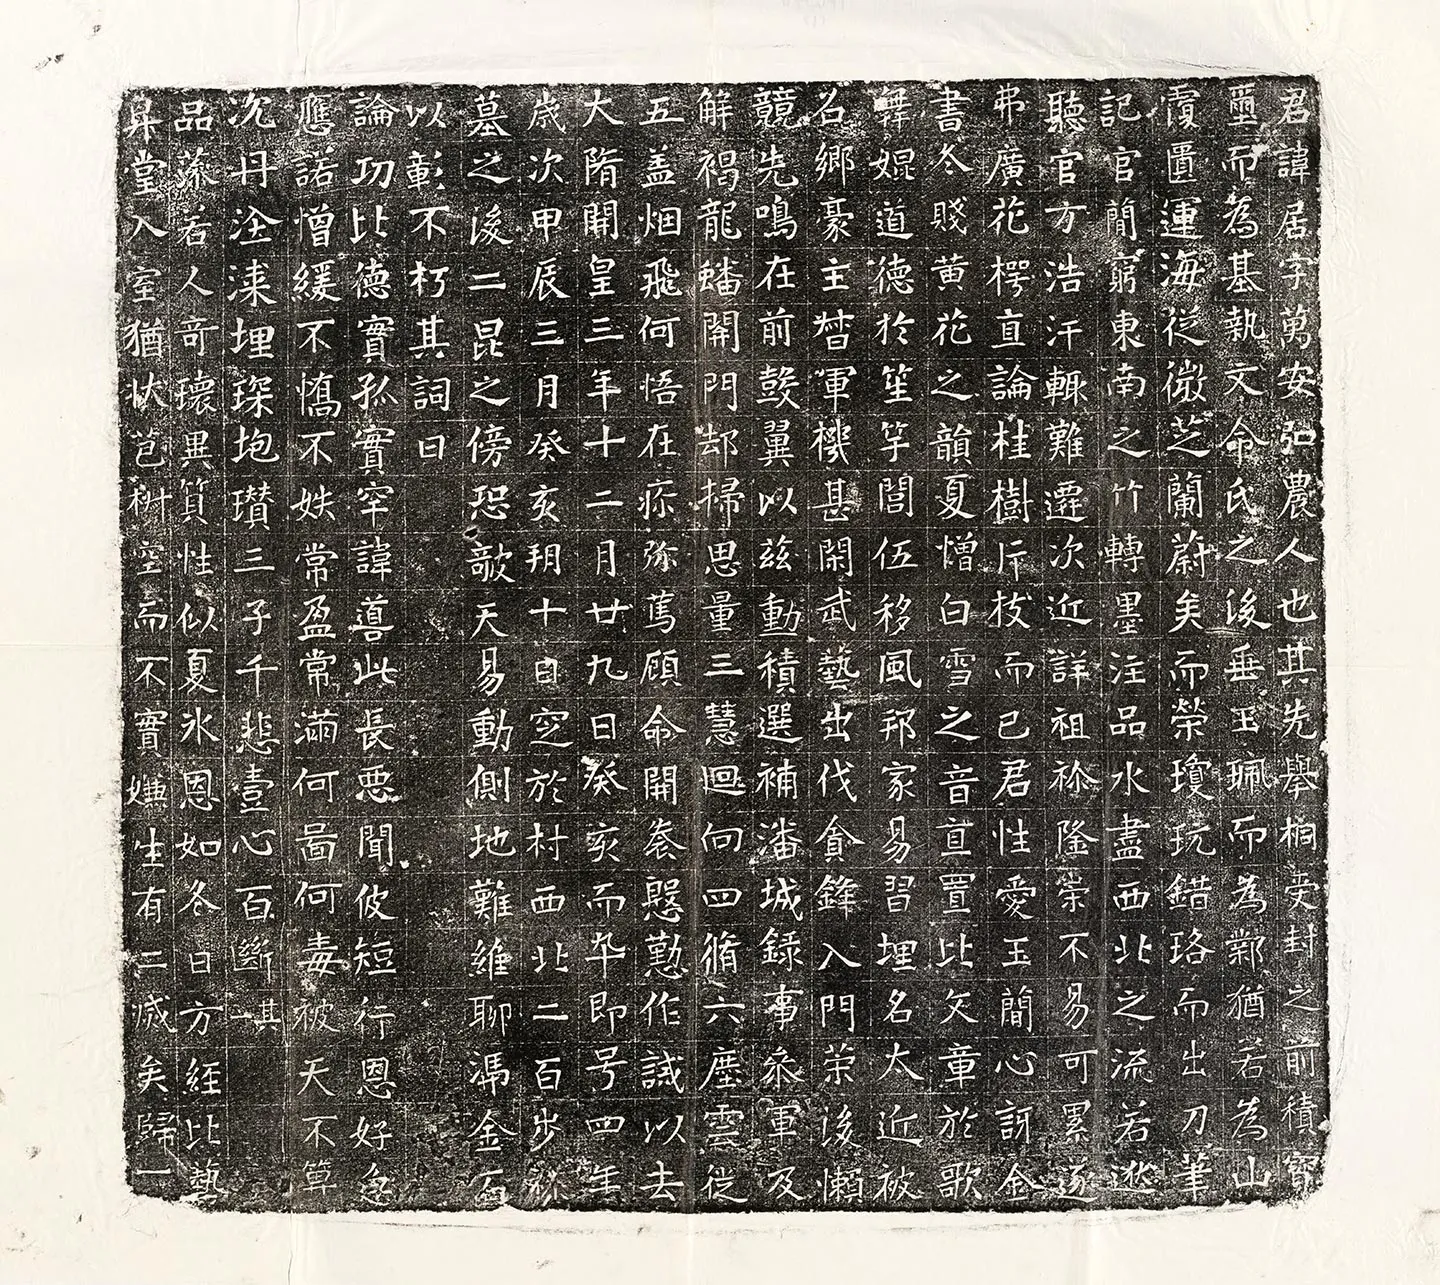 君諱居字萬安弘農人也其先舉桐受封之前積寶
璽而為基執文命氏之後垂玉珮而為鄴猶若為山
覆匱運海從微芝蘭蔚矣而榮瓊玩錯珞而出刀筆
記官簡窮東南之竹轉墨注品水盡西北之流若逖
聽官方浩汗輒難遷次近詳祖祢隆崇不易可累逐
弗廣花樗直論桂樹斤技而已君性愛玉簡心訝金
書冬賤黃花之韻夏憎白雪之音亘置比矢章於歌
舞娓道德於笙竽閭伍移風邦家易習埋名大近被
名鄉豪主督軍機甚閑武藝出伐貪鋒入門荣後懶
競先鳴在前鼓翼以茲動積選補潘城録事叅軍及
解褐龍蟠開門却掃思量三慧迴向四脩六塵雲從
五盖烟飛何悟在疹弥篤顧命開養慇懃作誡以去
大隋開皇三年十二月廿九日癸亥而卒即号四年
歲次甲辰三月癸亥朔十日空於村西北二百步祢
墓之後二昆之傍恐敧天易動側地難維聊馮金石
以彰不朽其詞曰
論功比德實孤實罕諱善此長惡聞彼短行恩好急
應諾憎緩不憍不姝常盈常滿何啚何毒被天不算
沉丹淦溁埋琛垉瓚三子千悲壹心百斷其一
品藻若人奇瓌異質性似夏氷恩如冬日方經比藝
昇堂入室猶状苞枡空而不實嫌生有二咸矣歸一